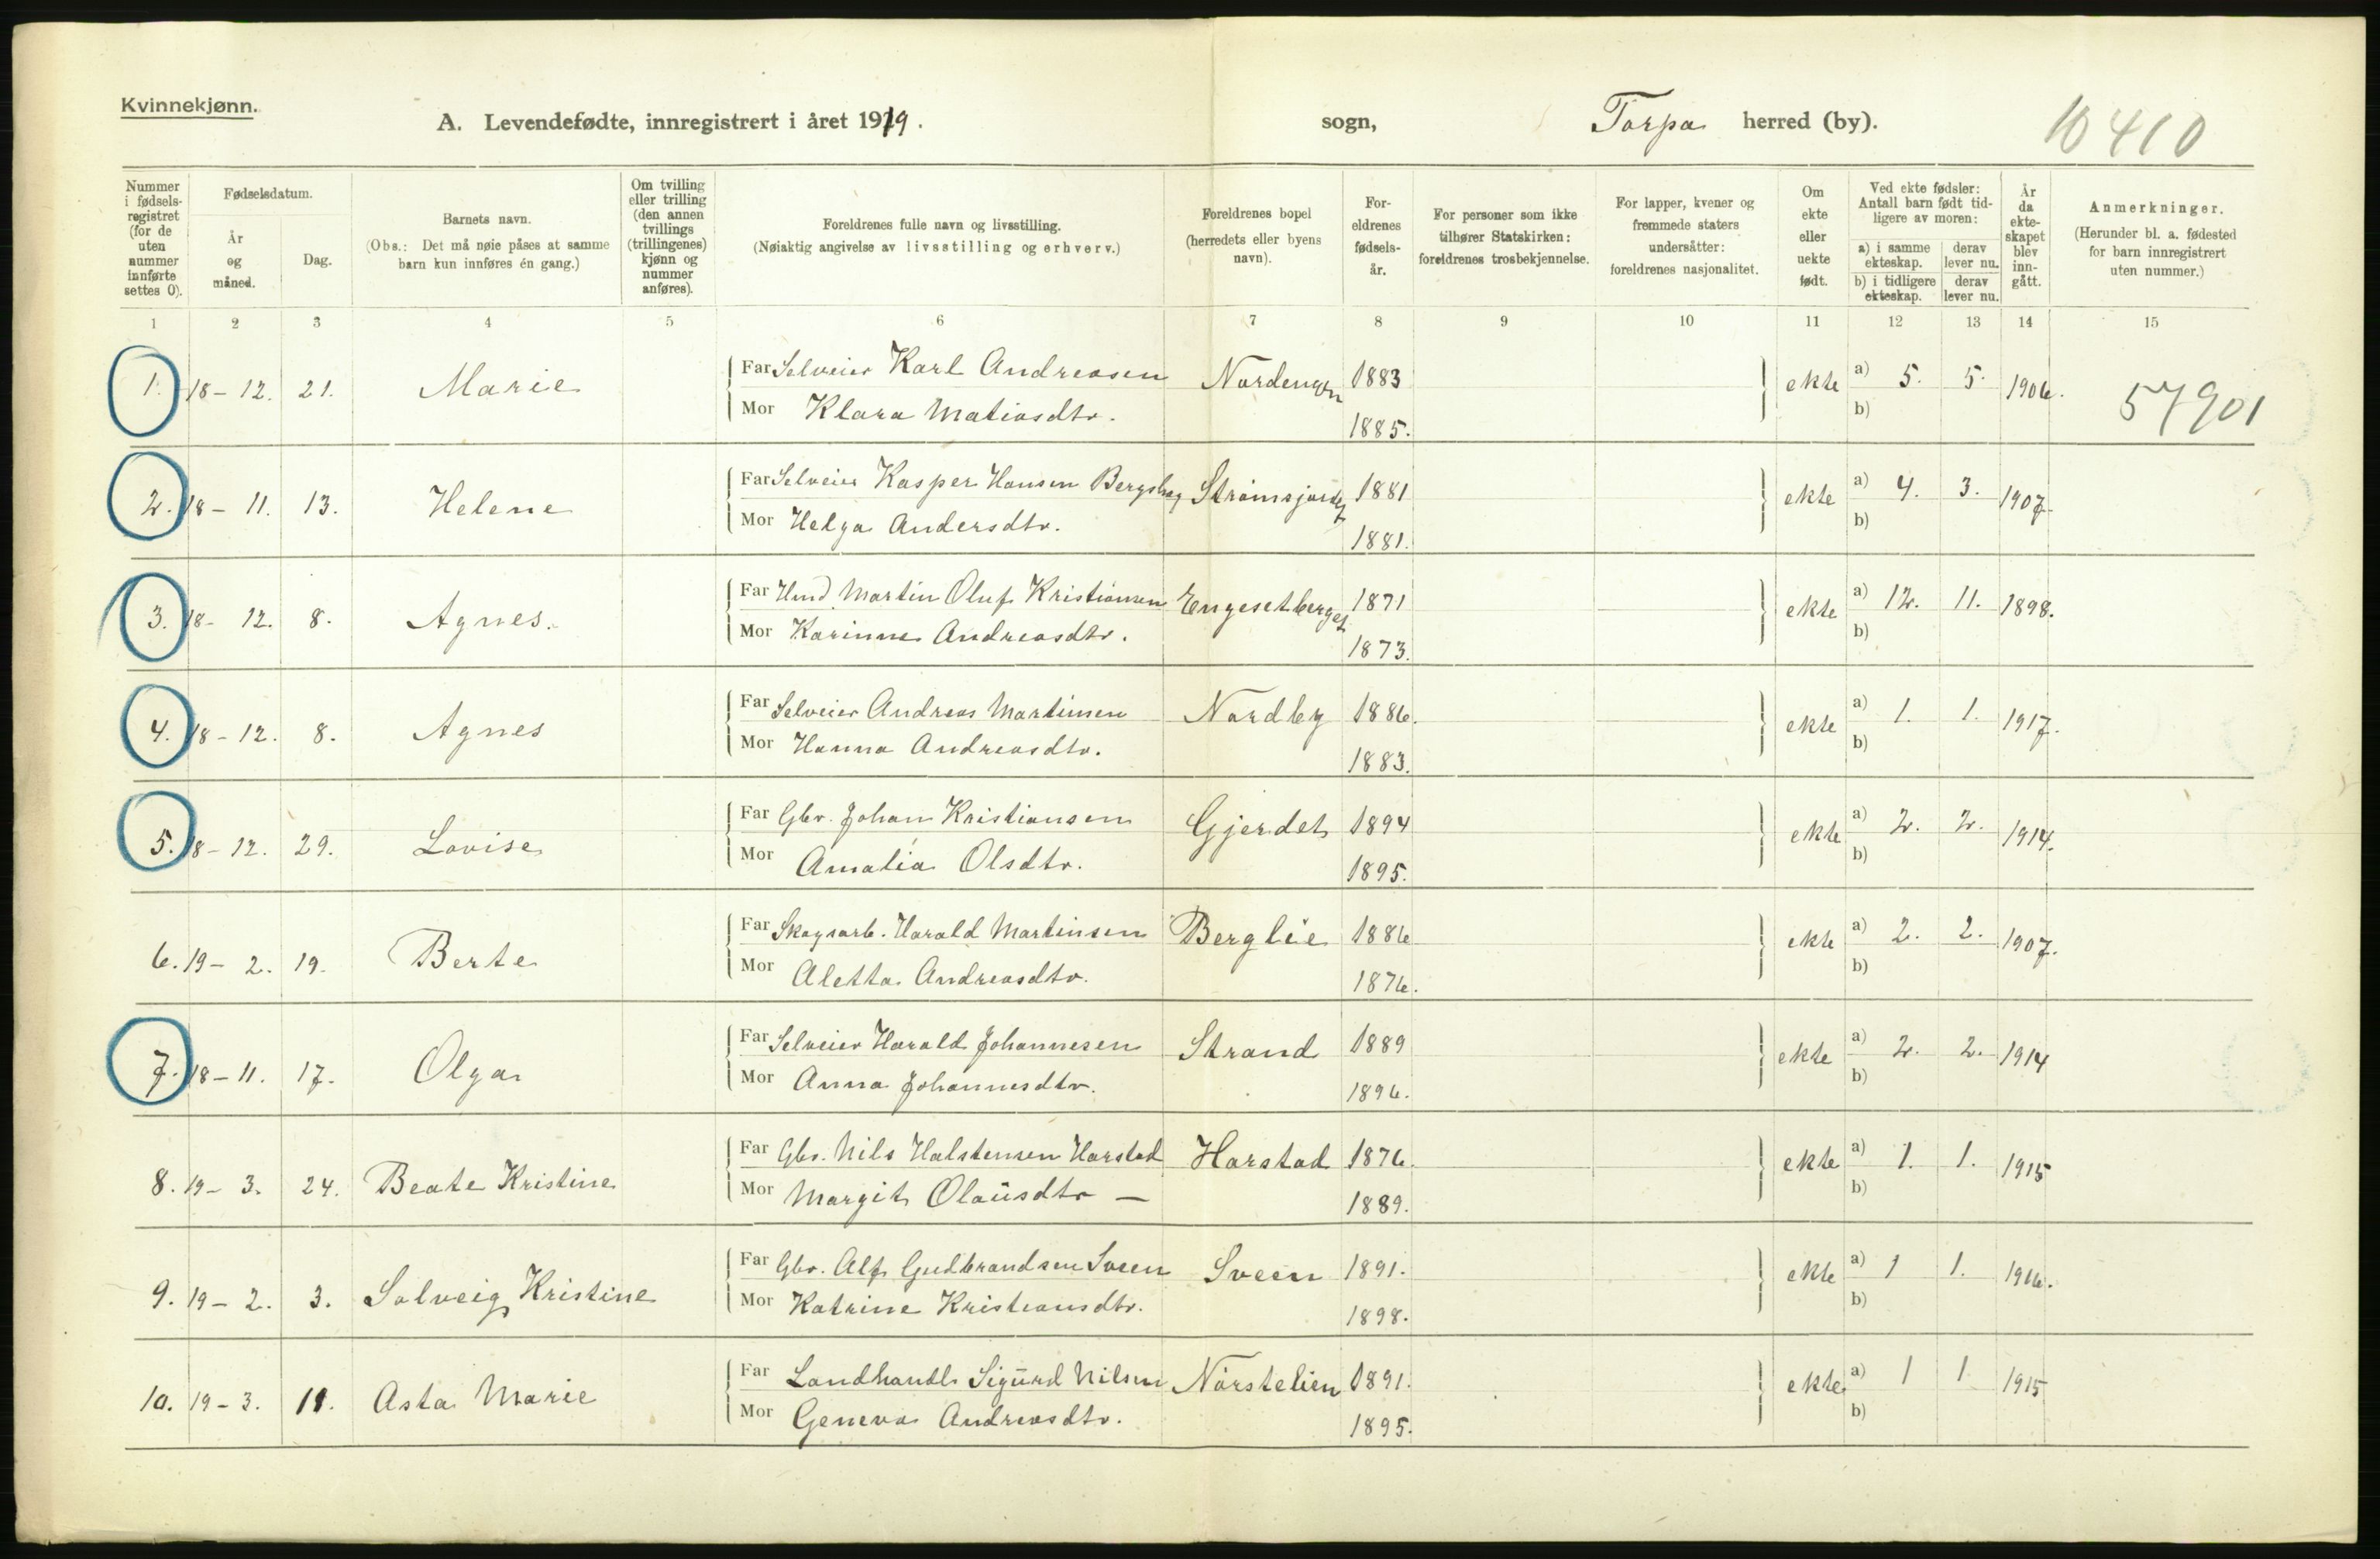 Kvinnekjønn.
A. Levendefødte, innregistrert i året 1919. sogn, Torpa herred (by). 10410
Nummer i fødsels-registret (for de uten nummer innførte settes 0).
Fødselsdatum.
År og måned.
Dag.
Barnets navn.
(Obs.: Det må nøie påses at samme barn kun innføres én gang.)
Om tvilling eller trilling (den annen tvillings (trillingenes) kjønn og nummer anføres).
Foreldrenes fulle navn og livsstilling.
(Nøiaktig angivelse av livsstilling og erhverv.)
Foreldrenes bopel (herredets eller byens navn).
For-eldrenes fødsels-år.
For personer som ikke tilhører Statskirken: foreldrenes trosbekjennelse.
For lapper, kvener og fremmede staters undersåtter: foreldrenes nasjonalitet.
Om ekte eller uekte født.
Ved ekte fødsler: Antall barn født tid-ligere av moren:
a) i samme ekteskap.
derav lever nu.
b) i tidligere ekteskap.
derav lever nu.
År da ekte-skapet blev inn-gått.
Anmerkninger.
(Herunder bl. a. fødested for barn innregistrert uten nummer.)
1 2 3 4 5 6 7 8 9 10 11 12 13 14 15
1. 18-12. 21. Marie Far Selveier Karl Andreasen Nordengen 1883 ekte a) 5. 5. 1906. 57901
Mor Klara Matiasdtr. 1885. b)
2. 18-11. 13. Helene Far Selveier Kasper Hansen Bergshag 1881 ekte a) 4. 3. 1907.
Mor Helga Andersdtr. 1881. b)
3. 18-12. 8. Agnes. Far Martin Oluf Kristiansen Engesetberget 1871 ekte a) 12. 11. 1898.
Mor Karinne Andreasdtr. 1873. b)
4. 18-12. 8. Agnes Far Selveier Andreas Martinsen Nordby 1886. ekte a) 1. 1. 1917.
Mor Hanna Andreasdtr. 1883. b)
5. 18-12. 29. Lovise Far Gbr. Johan Kristiansen Gjerdet 1894 ekte a) 2. 2. 1914.
Mor Amalia Olsdtr. 1895. b)
6. 19-2. 19. Berte Far Skogsarb. Harald Martinsen Berglie 1886 ekte a) 2. 2. 1907.
Mor Aletta Andreasdtr. 1876. b)
7. 18-11. 17. Olga Far Selveier Harald Johannesen Strand 1889 ekte a) 2. 2. 1914
Mor Anna Johannesdtr. 1896. b)
8. 19-3. 24. Beate Kristine Far Gbr. Nils Halstensen Harstad Harstad 1876. ekte a) 1. 1. 1915
Mor Margit Olausdtr — 1889. b)
9. 19-2. 3. Solveig Kristine Far Gbr. Alf Gudbrandsen Sveen Sveen 1891. ekte a) 1 1. 1916.
Mor Katrine Kristiansdtr. 1898. b)
10. 19-3. 11. Asta Marie Far Landhandl. Sigurd Nilsen Nørstelien 1891. ekte a) 1 1 1915
Mor Geneva Andreasdtr. 1895. b)